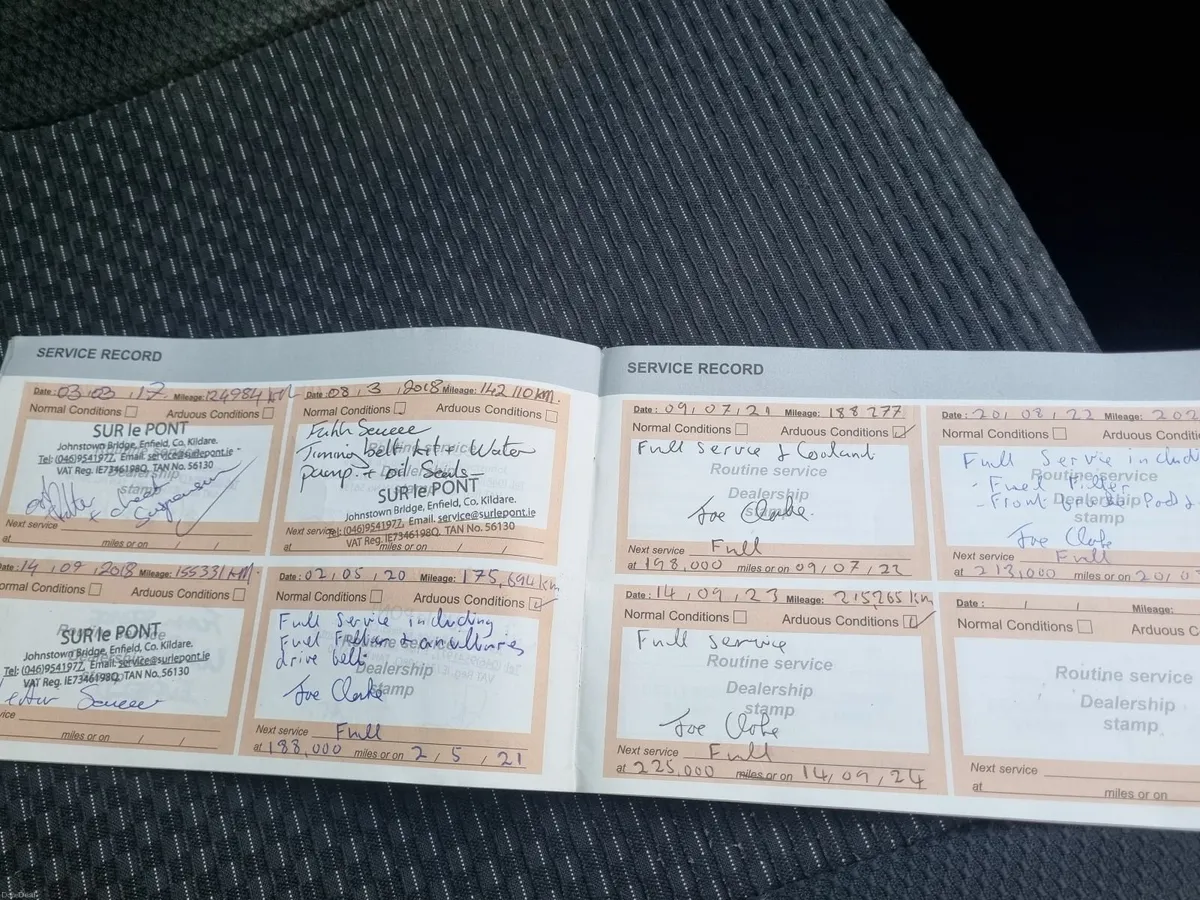 SERVICE RECORD
Date: 03 03 17 Mileage: 124984 KM
Normal Conditions Arduous Conditions
SUR le PONT
Johnstown Bridge, Enfield, Co. Kildare.
Tel: (046)9541977, Email: service@surlepont.ie
VAT Reg. IE7346198Q, TAN No. 56130
stamp
Next service
at miles or on / /
Date: 08, 3, 2018 Mileage: 142 110 km.
Normal Conditions Arduous Conditions
Full Service
Timing belt kit + Water
pump + oil Seals
SUR le PONT
Johnstown Bridge, Enfield, Co. Kildare.
Tel: (046)9541977, Email. service@surlepont.ie
VAT Reg. IE7346198Q, TAN No. 56130
Next service
at miles or on / /
Date: 14, 09, 2018 Mileage: 155331 KM.
Normal Conditions Arduous Conditions
SUR le PONT
Johnstown Bridge, Enfield, Co. Kildare.
Tel: (046)9541977, Email. service@surlepont.ie
VAT Reg. IE7346198Q, TAN No. 56130
miles or on / /
Date: 02, 05, 20 Mileage: 175,694 km
Normal Conditions Arduous Conditions
Full Service including
Fuel Filter & ancilliaries
drive belt
Dealership
stamp
Joe Clarke
Next service Full
at 188,000 miles or on 2, 5, 21
SERVICE RECORD
Date: 09, 07, 21 Mileage: 188.277
Normal Conditions Arduous Conditions
Full Service & Coolant
Routine service
Dealership
stamp
Joe Clarke
Next service Full
at 198,000 miles or on 09, 07, 22
Date: 20, 08, 22 Mileage: 202
Normal Conditions Arduous
Full Service includi
Routine service
- Fuel Filter
- Front Brake Pads
Dealership
stamp
Joe Clarke
Next service Full
at 213,000 miles or on 20, 0
Date: 14, 09, 23 Mileage: 215265 km
Normal Conditions Arduous Conditions
Full Service
Routine service
Dealership
stamp
Joe Clarke
Next service Full
at 225,000 miles or on 14, 09, 24
Date: / / Mileage:
Normal Conditions Arduous C
Routine service
Dealership
stamp
Next service
at miles or on